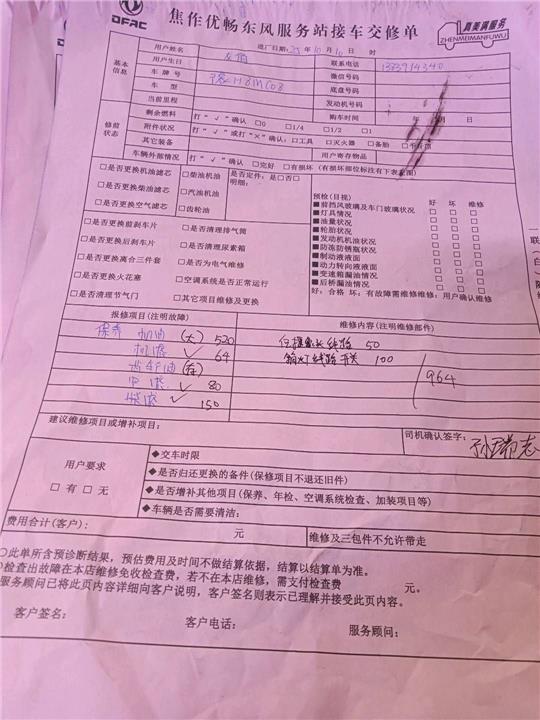 DFAC
焦作优畅东风服务站接车交修单
真美满服务
ZHENMEIMANFUWU
基本信息
用户姓名
进厂日期: 25 年 10 月 10 日 时
用户生日
联系电话
车牌号
微信号码
车型
底盘号码
当前里程
发动机号码
购车时间 年 月 日
修前状态
剩余燃料 打“√”确认 □0 □1/4 □1/2 □1
附件状况 打“√”或打“×”确认: □工具 □灭火器 □备胎 □千斤顶
其它装备
用户寄存物品
车辆外部情况 打“√”确认 □完好 □有损坏(有损坏部位标注有下表示图)
□是否更换机油滤芯 □柴油机油 是否定件: 是□否□
□是否更换柴油滤芯 □汽油机油 明细:
□是否更换空气滤芯 □齿轮油
□是否更换前刹车片 □是否清理排气筒
□是否更换后刹车片 □是否清理尿素箱
□是否更换离合三件套 □是否为电气维修
□是否更换火花塞 □空调系统是否正常运行
□是否清理节气门 □其它项目维修及更换
预检(目视) 好 坏 维修
■前挡风玻璃及车门玻璃状况
■灯具情况
■油量状况
■轮胎状况
■发动机机油状况
■防冻防锈瓶状况
■制动液液面
■动力转向液液面
■变速箱漏油情况
■后桥漏油情况
好: 合格 坏: 有故障需维修维修: 用户确认维修
报修项目(注明故障) 维修内容(注明维修部件)
保养 机油 (大) 520
50
机滤 √ 64
开关 100
964
√ 80
√ 150
建议维修项目或增补项目:
司机确认签字:
用户要求
□有 □无
◆交车时限
◆是否归还更换的备件(保修项目不退还旧件)
◆是否增补其他项目(保养、年检、空调系统检查、加装项目等)
◆车辆是否需要清洁:
费用合计(客户): 元 维修及三包件不允许带走
○此单所含预诊断结果,预估费用及时间不做结算依据,结算以结算单为准。
检查出故障在本店维修免收检查费,若不在本店维修,需支付检查费 元。
服务顾问已将此页内容详细向客户说明,客户签名则表示已理解并接受此页内容。
客户签名: 客户电话: 服务顾问: